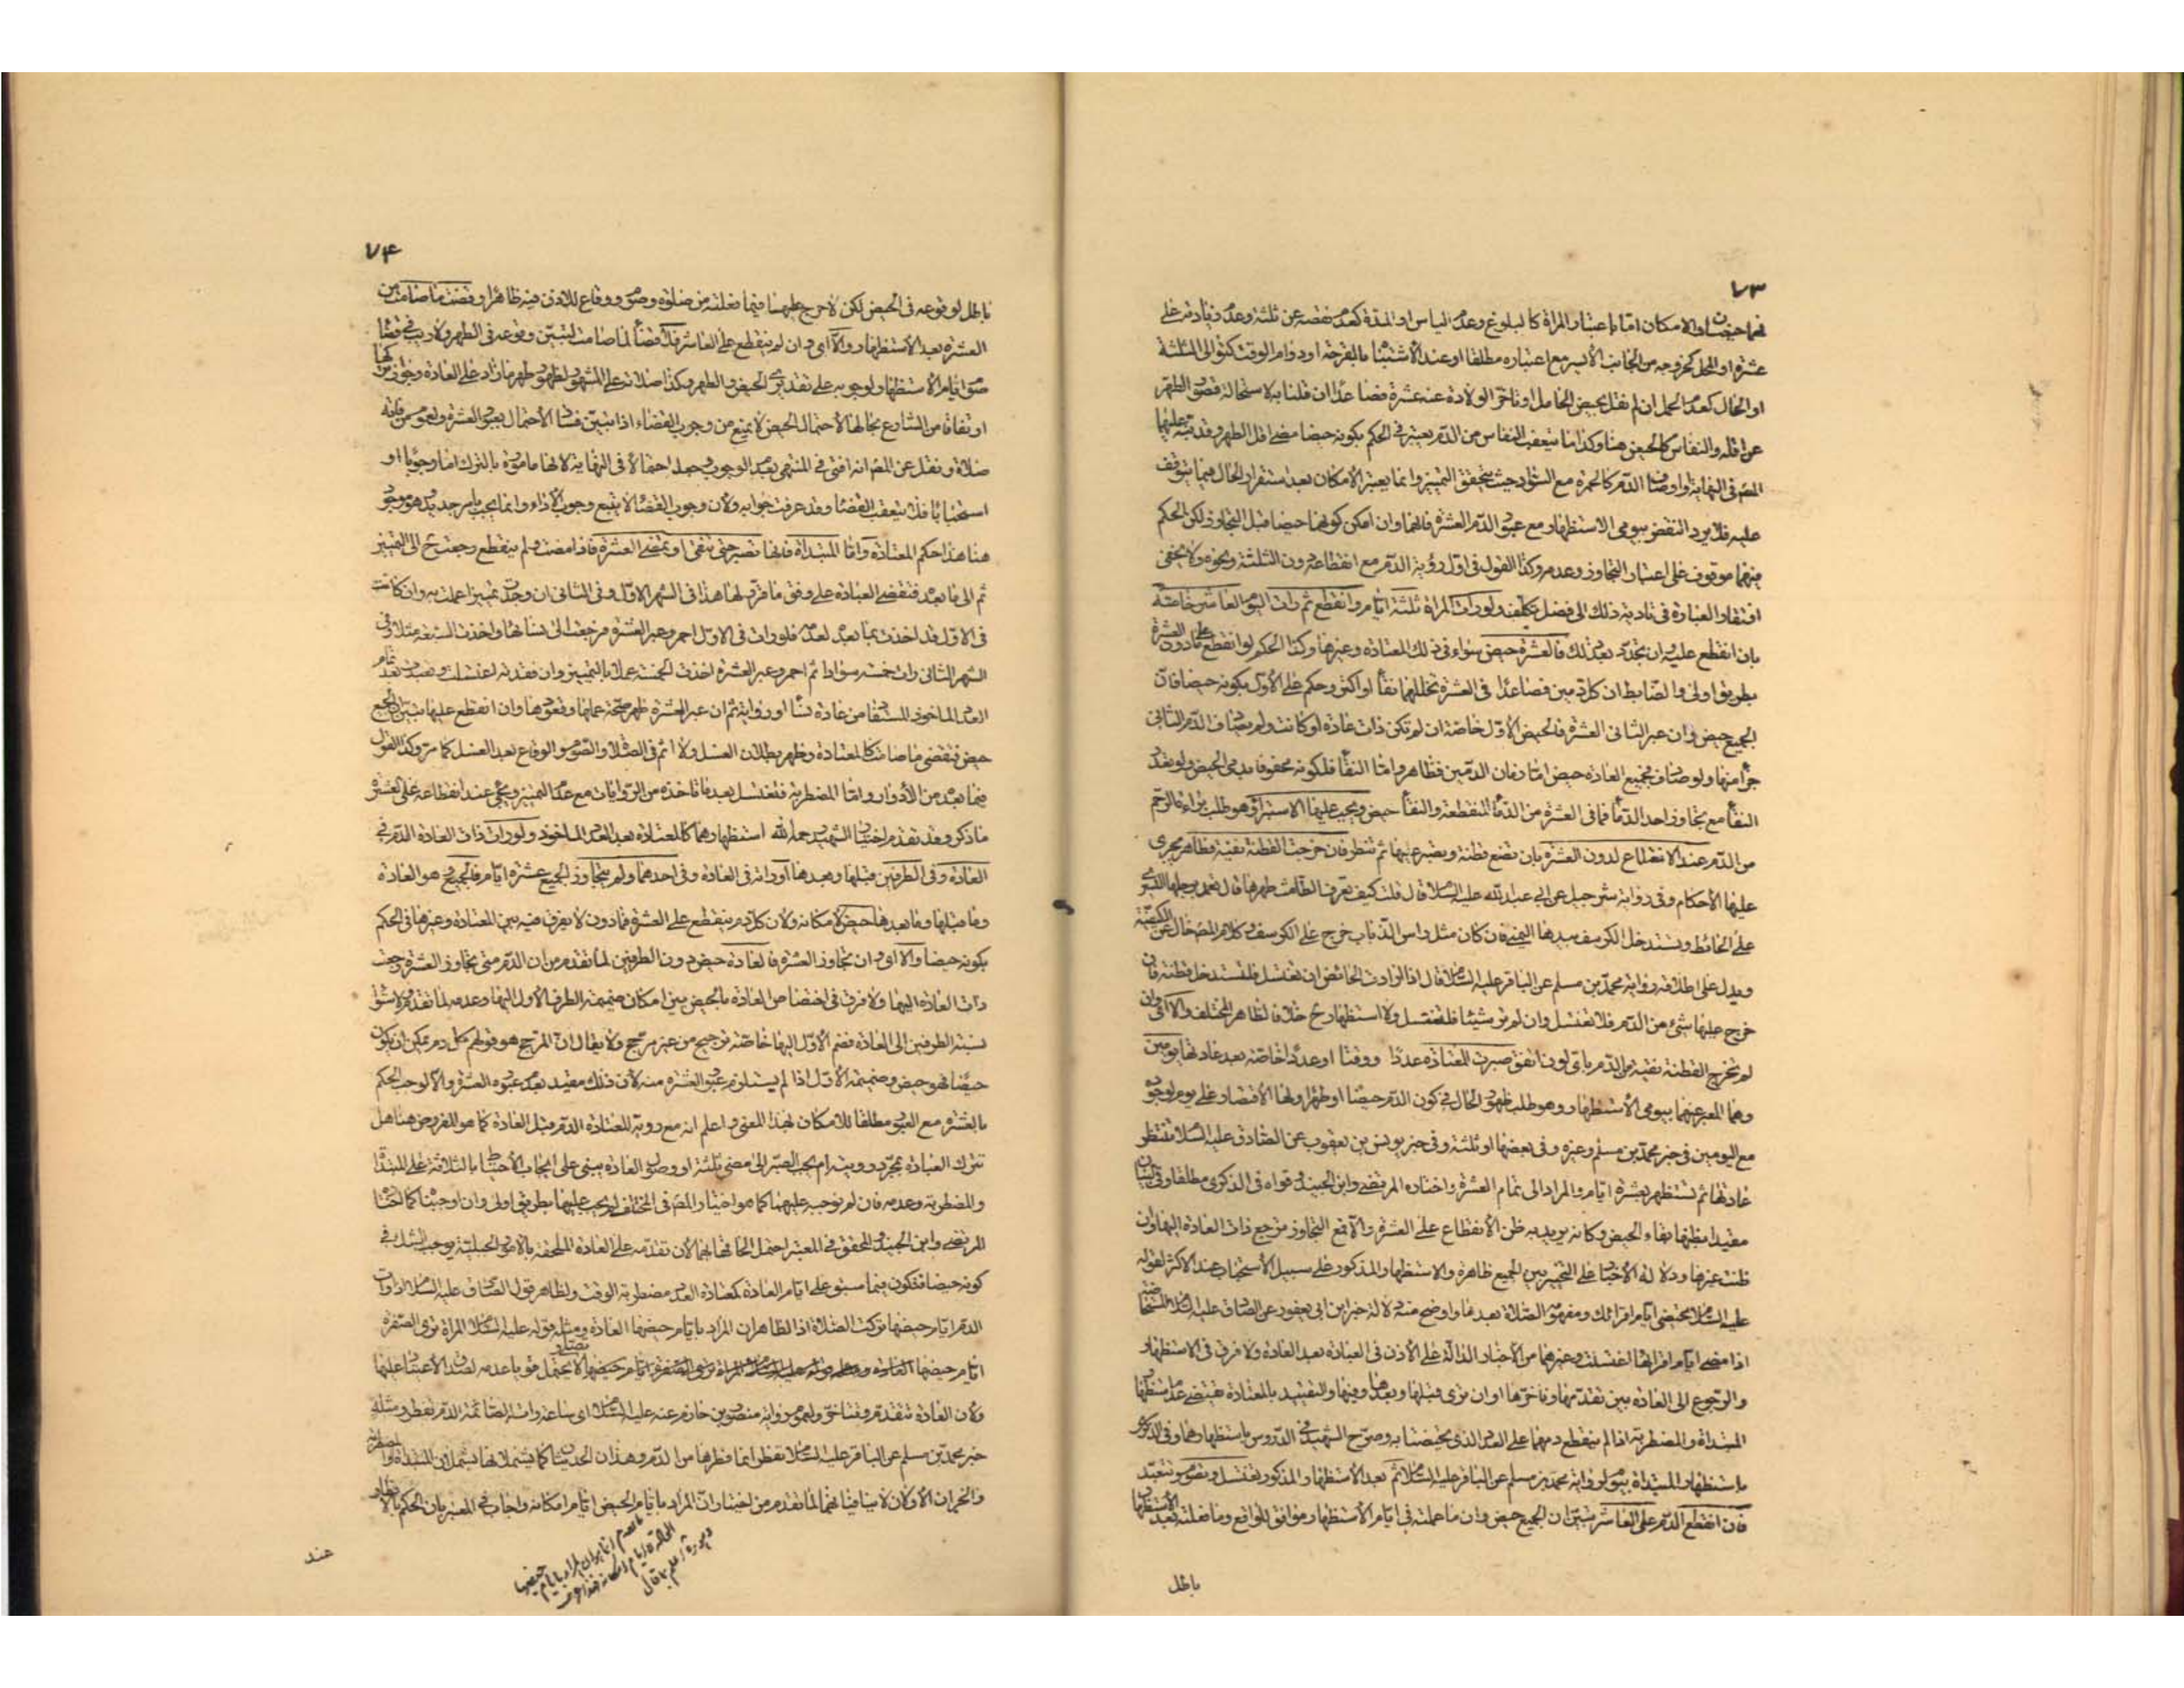 ٧٣
فهما حيضان والامكان امّا باعتبار المراة كالبلوغ وعدم الياس او المدة كعدم نقصه عن ثلثة وعدم زيادته على
عشرة او المحل كخروجه من الجانب الأيسر مع اعتباره مطلقا او عند الاشتباه بالقرحة او دوام الوقت كتوالى الثلثة
او الحال كعدم الحمل ان لم نقل بحيض الحامل او تاخر الولادة عنه عشرة فصاعدًا ان قلنا به لاستحالة قصور الطهر
عن اقله والنفاس كالحيض هنا وكذا ما يتعقب النفاس من الدّم يعتبر فى الحكم بكونه حيضا مضى اقل الطهر وقد نبّه عليهما
المصّ فى النهاية او اوصاف الدّم كالحمرة مع السّواد حيث يتحقق التميز وانما يعتبر الامكان بعد استقرار الحال فيما يتوقف
عليه فلا يرد النقض بيومى الاستظهار مع عبور الدّم العشرة فانهما وان امكن كونهما حيضا قبل التجاوز لكن الحكم
فيهما موقوف على اعتبار التجاوز وعدمه وكذا القول فى اول رؤية الدّم مع انقطاعه دون الثلثة ونحوه ولا يخفى
افتقار العبارة فى تادية ذلك الى فضل تكلّف ولو رات المراة ثلثة ايّام وانقطع ثم رات اليوم العاشر خاصّة
بان انقطع عليه وان تجدّد بعد ذلك فالعشرة حيض سواء فى ذلك المعتادة وغيرها وكذا الحكم لو انقطع على مادون العشرة
بطريق اولى والضّابط ان كل دمين فصاعدًا فى العشرة تخللهما نقاء او اكثر وحكم على الأول بكونه حيضا فان
الجميع حيض وان عبر الثانى العشرة فالحيض الأوّل خاصّة ان لم تكن ذات عادة او كانت ولم يصادف الدّم الثانى
جزأ منها ولو صادف فجميع العادة حيض امّا زمان الدمين فظاهر وامّا النقاء فلكونه محفوفا بدمى الحيض ولو تعدّد
النقاء مع تجاوز احد الدّماء فما فى العشرة من الدّماء المنقطعة والنقاء حيض ويجب عليها الاستبراء وهو طلب براءة الرّحم
من الدّم عند الانقطاع لدون العشرة بان تضع قطنة وتصبر عليها ثم تنظر فان خرجت القطنة نقية فطاهر يجرى
عليها الأحكام وفى رواية شرحبيل عن ابى عبد الله عليه السلام قال قلت كيف تعرف الطامث طهرها قال تعمد برجلها اليسرى
على الحائط وتستدخل الكرسف بيدها اليمنى فان كان مثل راس الذباب خرج على الكرسف وكلام المص خال عن الكيفيّة
ويدل على اطلاقه رواية محمّد بن مسلم عن الباقر عليه السلام قال اذا ارادت الحائض ان تغتسل فلتستدخل قطنة فان
خرج عليها شئ من الدّم فلا تغتسل وان لم تر شيئا فلتغتسل ولا استظهار ح خلافا لظاهر المختلف والا اى وان
لم تخرج القطنة نقية من الدّم باى لون اتفق صبرت المعتادة عددًا ووقتا او عددًا خاصّة بعد عادتها يومين
وهما المعبر عنهما بيومى الاستظهار وهو طلب ظهور الحال فى كون الدّم حيضًا او طهرًا ولها الاقتصار على يوم لوجوده
مع اليومين فى خبر محمّد بن مسلم وغيره وفى بعضها او ثلثة وفى خبر يونس بن يعقوب عن الصّادق عليه السلام تنتظر
عادتها ثم تستظهر بعشرة ايّام والمراد الى تمام العشرة واختاره المرتضى وابن الجنيد وقواه فى الذكرى مطلقا وفى البيان
مقيدا بظنها بقاء الحيض وكانه يريد به ظن الانقطاع على العشرة والا فمع التجاوز ترجع ذات العادة اليها وان
ظنت غيرها ودلالة الأخبار على التخيير بين الجميع ظاهرة والاستظهار المذكور على سبيل الاستحباب عند الاكثر لقوله
عليه السّلام تحيضى ايّام اقرائك ومفهومه الصّلاة بعدها واوضح منه دلالة خبر ابن ابى يعفور عن الصادق عليه السلام المستحاضة
اذا مضى ايّام اقرائها اغتسلت وغيرهما من الأخبار الدّالّة على الأذن فى العبادة بعد العادة ولا فرق فى الاستظهار
والرّجوع الى العادة بين تقدّمها وتاخرها او ان ترى قبلها وبعدها وفيها والتقييد بالمعتادة يقتضى عدم استظهار
المبتداة والمضطربة اذا لم ينقطع دمهما على العدد الذى تحيضتا به وصرّح الشهيد فى الدّروس باستظهارهما وفى الذكرى
باستظهار المبتداة بيوم لرواية محمد بن مسلم عن الباقر عليه السلام ثم بعد الاستظهار المذكور تغتسل وتصوم وتتعبّد
فان انقطع الدّم على العاشر تبيّن ان الجميع حيض وان ما عملته فى ايّام الاستظهار موافق للواقع وما فعلته بعد الاستظهار
باطل
٧۴
باطل لوقوعه فى الحيض لكن لا حرج عليها فيما فعلته من صلوة وصوم ووقاع للاذن فيه ظاهرًا وقضت ما صامت من
العشرة بعد الاستظهار والا اى وان لم ينقطع على العاشر فلا قضاء لما صامت لتبيّن وقوعه فى الطهر ولا ريب فى قضاء
صوم ايّام الاستظهار لوجوبه على تقديرى الحيض والطهر وكذا صلاته على المشهور لظهور طهر مازاد على العادة وجواز تركها
ارتفاقا من الشارع بحالها لاحتمال الحيض لا يمنع من وجوب القضاء اذا تبيّن فساد الاحتمال بعبور العشرة ولعموم من فاتته
صلاة ونقل عن المص انه افتى فى المنتهى بعدم الوجوب وجعله احتمالا فى النهاية لانها مامورة بالترك امّا وجوبًا او
استحبابًا فلا يتعقب القضاء وقد عرفت جوابه ولان وجوب القضاء لا يتبع وجوب الأداء وانما يجب بامر جديد هو موجود
هنا هذا حكم المعتادة وامّا المبتداة فانها تصبر حتى تنقى او تمضى العشرة فاذا مضت ولم ينقطع رجعت ح الى التمييز
ثم الى ما بعده فتقضى العبادة على وفق ما قرّر لها هذا فى الشهر الأوّل وفى الثانى ان وجدت تمييزا عملت به وان كانت
فى الأوّل قد اخذت بما بعده لعدمه فلو رات فى الأوّل احمر وعبر العشرة فرجعت الى نسائها واخذت السّبعة مثلا وفى
الشهر الثانى رات خمسة سوادا ثم احمر وعبر العشرة اخذت الخمسة عملا بالتمييز وان فقدته اغتسلت وتعبدت بعد تمام
العدد الماخوذ المستفاد من عادة نساء او رواية ثم ان عبر العشرة ظهر صحّة عملها وقعودها وان انقطع عليها تبيّن ان الجميع
حيض فتقضى ما صامت كالمعتادة وظهر بطلان الغسل ولا اثم فى الصّلاة والصّوم والوقاع بعد الغسل كما مرّ وكذا القول
فيما بعده من الأدوار وامّا المضطربة فتغتسل بعدما تاخذه من الرّوايات مع عدم التمييز ويجئ عند انقطاعه على العشرة
ما ذكر وقد تقدم اختيار الشهيد رحمه الله استظهارهما كالمعتادة بعد العدد الماخوذ ولو رات ذات العادة الدّم فى
العادة وفى الطرفين قبلها وبعدها او راته فى العادة وفى احدهما ولم يتجاوز الجميع عشرة ايّام فالجميع وهو العادة
وما قبلها وما بعدها حيض لامكانه ولان كل دم ينقطع على العشرة فما دون لا يفرق فيه بين المعتادة وغيرها فى الحكم
بكونه حيضا والا اى وان تجاوز العشرة فالعادة حيض دون الطرفين لما تقدم من ان الدّم متى تجاوز العشرة رجعت
ذات العادة اليها ولا فرق فى اختصاص العادة بالحيض بين امكان ضميمة الطرف الأول اليها وعدمه لما تقدم ولاستواء
نسبة الطرفين الى العادة فضم الأوّل اليها خاصّة ترجيح من غير مرجّح ولا يقال ان المرجّح هو قولهم كل دم يمكن ان يكون
حيضًا فهو حيض وضميمة الأوّل اذا لم يستلزم عبور العشرة منه لأن ذلك مقيد بعدم عبوره العشرة والا لوجب الحكم
بالعشرة مع العبور مطلقا للامكان بهذا المعنى واعلم انه مع رؤية المعتادة الدّم قبل العادة كما هو المفروض هنا هل
تترك العبادة بمجرّد رؤيته ام يجب الصّبر الى مضى ثلثة او وصول العادة يبنى على ايجاب الاحتياط بالثلاثة على المبتداة
والمضطربة وعدمه فان لم نوجبه عليهما كما هو اختيار المص فى المختلف لم يجب عليها بطريق اولى وان اوجبناه كما اختاره
المرتضى وابن الجنيد والمحقق فى المعتبر احتمل الحاقها بهما لأن تقدّمه على العادة الملحقة بالأمور الجبليّة يوجب الشك فى
كونه حيضا فتكون فيما سبق على ايّام العادة كمعتادة العدد مضطربة الوقت ولظاهر قول الصادق عليه السلام اذا رات
الدّم ايّام حيضها تركت الصّلاة اذ الظاهر ان المراد بايّام حيضها العادة ومثله قوله عليه السلام المراة ترى الصّفرة
ايّام حيضها لا تصلّى ويحتمل قويا عدمه لصدق الأعتياد عليها
ولأن العادة تتقدم وتتاخر ولعموم رواية منصور بن حازم عنه عليه السلام اى ساعة رات الصائمة الدّم تفطر ومثله
خبر محمّد بن مسلم عن الباقر عليه السّلام تفطر انما فطرها من الدّم وهذان الحديثان كما يشملانها يشملان المبتداة والمضطربة
والخبران الأوّلان لا ينافيانهما لما تقدم من اختيار ان المراد بايّام الحيض ايّام امكانه واجاب فى المعتبر بان الحكم بالافطار
عند